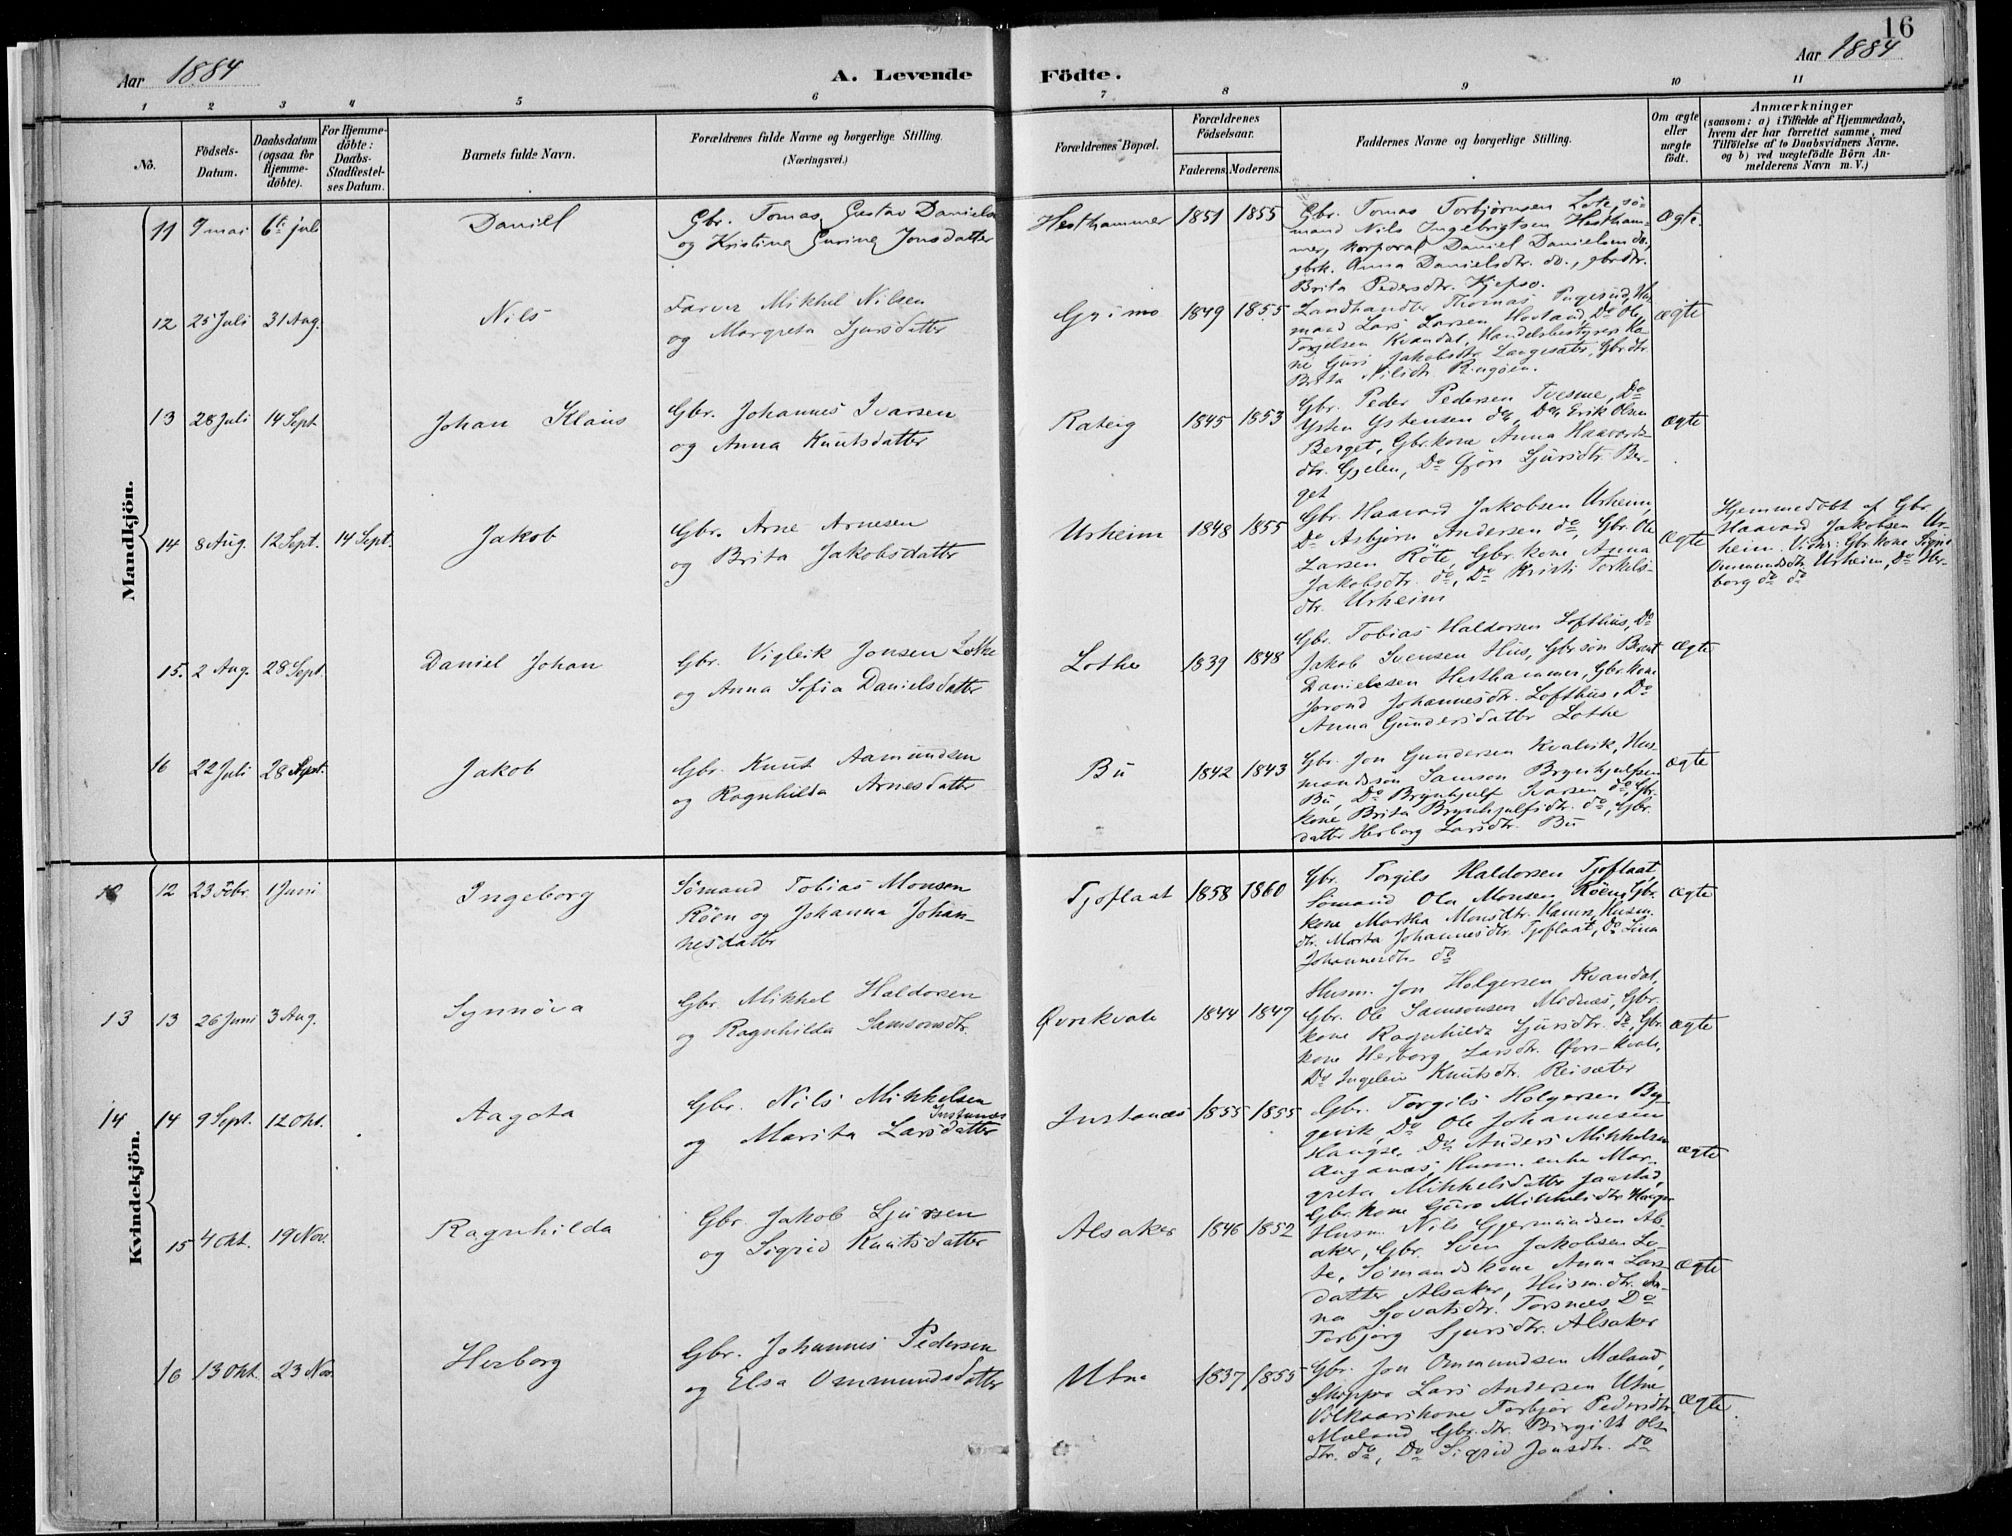 16
Aar 1884
A. Levende
Födte.
Aar 1884
1 2 3 4 5 6 7 8 9 10 11
No.
Födsels-
Datum.
Daabsdatum
(ogsaa for
Hjemme-
døbte).
For Hjemme-
döbte:
Daabs-
Stadfæstel-
ses Datum.
Barnets fulde Navn.
Forældrenes fulde Navne og borgerlige Stilling.
(Næringsvei.)
Forældrenes Bopæl.
Forældrenes
Födselsaar.
Faderens. Moderens.
Faddernes Navne og borgerlige Stilling.
Om ægte
eller
uægte
født.
Anmærkninger
(saasom: a) i Tilfælde af Hjemmedaab,
hvem der har forrettet samme, med
Tilföielse af to Daabsvidners Navne,
og b) ved uægtefödte Börn An-
melderens Navn m. V.)
Mandkjön.
11 9 mai 6te juli Daniel
Gbr. Tomas Gustav Daniels
og Kristine Gurine Jonsdatter
Hesthammer 1851 1855
Gbr. Tomas Torbjørnsen Lote, sø-
mand Nils Ingebrigtsen Hestham-
mer, korporal Daniel Danielsen do.,
gbrk. Anna Danielsdtr. do., gbrdtr.
Brita Pedersdtr. Kjepso.
Ægte.
12 25 Juli 31 Aug. Nils
Farver Mikkel Nilsen
og Margreta Sjursdatter
Grimo 1849 1855
Landhandler Thomas
mand Lars Larsen Hovland, Do Ole
Torgelsen Kvandal, Handelsbestyrer Ka-
ne Guri Jakobsdtr. Langesæter, Gbr dtr.
Brita Nilsdtr. Ringøen.
ægte
13 28 Juli 14 Sept Johan Klaus
Gbr. Johannes Ivarsen
og Anna Knutsdatter
Rateig 1845 1853
Gbr. Peder Pedersen Tvesme, Do
Ysten Ystensen do, Do Erik Olsen
Berget, Gbr.kone Anna Haavards-
dtr. Gjelen, Do Gjøri Sjursdtr. Ber-
get
ægte
14 8 Aug. 12 Sept. 14 Sept. Jakob
Gbr. Arne Arnesen
og Brita Jakobsdatter
Urheim 1848 1855
Gbr. Haavard Jakobsen Urheim,
Do Asbjørn Andersen do, Gbr. Ole
Larsen Röte, Gbr. kone Anna
Jakobsdtr. do, Do Kristi Torkels-
dtr. Urheim
Ægte
Hjemmedøbt af Gbr.
Haavard Jakobsen Ur-
heim. Vidner: Gbr.kone Signe
Ommundsdtr. Urheim, Do Her-
borg do do
15. 2 Aug. 28 Sept. Daniel Johan
Gbr. Vigleik Jonsen Lothe
og Anna Sofia Danielsdatter
Lothe 1839 1848
Gbr. Tobias Haldorsen Lofthus, Do
Jakob Svensen Hus, Gbr.søn Berent
Danielsen Hesthammer, Gbr.kone
Jorond Johannesdtr. Lofthus, Do
Anna Gundersdatter Lothe
Ægte
16 22 Juli 28 Sept. Jakob
Gbr. Knut Aamundsen
og Ragnhilda Arnesdatter
Bu 1842 1843
Gbr. Jon Gundersen Kvalvik, Hus-
mandssøn Samson Brynhjulfsen
Bu, Do Brynhjulf Ivarsen do, Gbr.
kone Brita Brynhjulfsdtr. do, Gbr.
datter Herborg Larsdtr. Bu
ægte
Kvindekjön.
12 23 Febr. 1 Juni Ingeborg
Sømand Tobias Monsen
Röen og Johanna Johan-
nesdatter
Tjoflaat 1858 1860
Gbr. Torgils Haldorsen Tjoflaat,
Sømand Ola Monsen Röen, Gbr.
kone Martha Monsdtr. Hamre, Husm.
dtr. Marta Johannesdtr. Tjoflaat, Do Lina
Johannesdtr. do
ægte
13 13 26 Juni 3 Aug. Synnöva
Gbr. Mikkel Haldorsen
og Ragnhilda Samsonsdtr.
Øvrekvale 1844 1847
Husm. Jon Holgersen Kvandal,
Gbr. Ole Samsonsen Midnæs, Gbr.
kone Ragnhilda Sjursdtr. do, Gbr.
kone Herborg Larsdtr. Øvre-Kvale,
Do Ingelein Knutsdtr. Reisæter
ægte
14 14 9 Sept. 12 Okt. Aagota
Gbr. Nils Mikkelsen
Instanæs
og Marita Larsdatter
Instanæs 1855 1855
Gbr. Torgils Holgersen Byg-
gevik, Do Ole Johannesen
Haugse, Do Anders Mikkelsen
Anganæs, Husm. enke Mar-
greta Mikkelsdatter Jaastad,
Gbr. kone Göro Mikkelsdtr. Haugse
ægte
15 4 Okt. 19 Nov. Ragnhilda
Gbr. Jakob Sjursen
og Sigrid Knutsdatter
Alsaker 1846 1852
Husm. Nils Gjermundsen Als-
aker, Gbr. Sven Jakobsen Lo-
te, Sømandskone Anna Lars-
datter Alsaker, Husm. dtr. An-
na Sjovatsdtr. Torsnes, Do
Torbjørg Sjursdtr. Alsaker
ægte
16 13 Okt. 23 Nov. Herborg
Gbr. Johannes Pedersen
og Elsa Ommundsdatter
Utne 1837 1855
Gbr. Jon Ommundsen Maland,
Skipper Lars Andersen Utne,
Vilkaarskone Torbjør Pedersdtr.
Maland, Gbr. dtr. Birgitt Ols-
dtr. do, Do Sigrid Jonsdtr. do
Ægte.